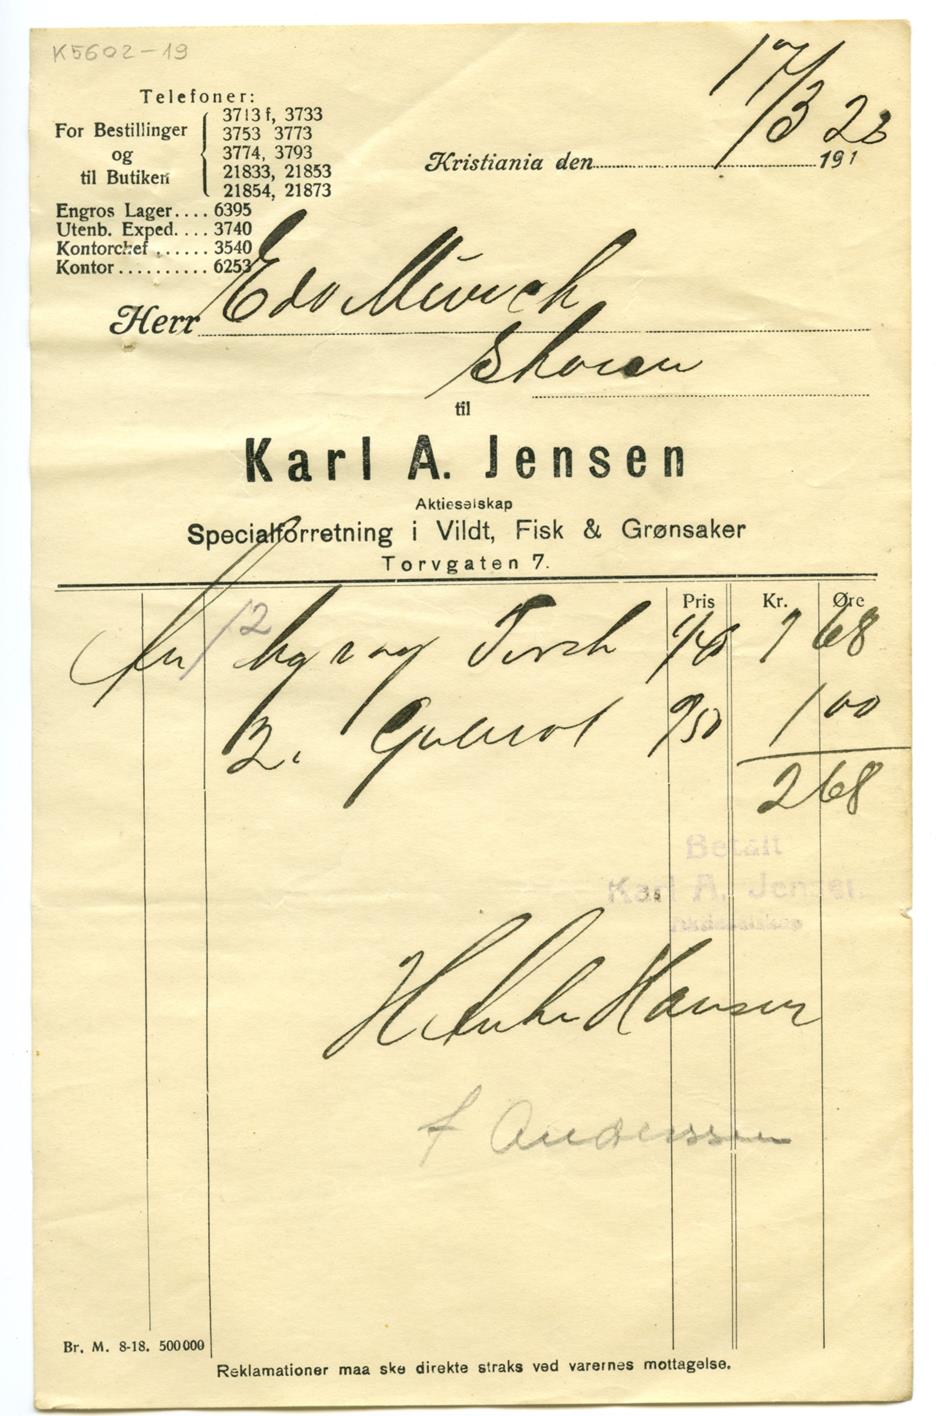 K5602-19
17/3 23
Telefoner:
3713 f, 3733
For Bestillinger 3753 3773
og 3774, 3793
til Butiken 21833, 21853
21854, 21873
Kristiania den 191
Engros Lager.... 6395
Utenb. Exped.... 3740
Kontorchef ...... 3540
Kontor .......... 6253
Herr Edv Munch
Skøien
til
Karl A. Jensen
Aktieselskap
Specialforretning i Vildt, Fisk & Grønsaker
Torvgaten 7.
Pris Kr. Øre
12 hg Torsk 1/40 1 68
2. Gulerot 0/50 1 00
2 68
Betalt
Karl A. Jensen
Aktieselskap
Hansen
f Anderssen
Br. M. 8-18. 500000
Reklamationer maa ske direkte straks ved varernes mottagelse.